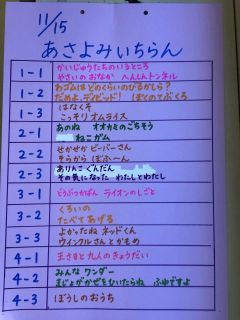 11/15
あさよみいちらん
1-1 かいじゅうたちのいるところ
やさいのおなか へんしんトンネル
1-2 わゴムはどのくらいのびるかしら?
だめよ、デイビッド! ぼくのてぶくろ
1-3 はなくそ
こっそりオムライス
2-1 あのね オオカミのごちそう
ねこガム
2-2 せかせかビーバーさん
そらから ぼふーん
2-3 ありんこぐんだん
その気になった わたしとわたし
3-1 どうぶつかぶん ライオンのしごと
3-2 くろいの
たべてあげる
3-3 よかったねネッドくん
ウインクルさんとかもめ
4-1 王さまと九人のきょうだい
4-2 みんな ワンダー
まじょがかぜをひいたらね ふゆですよ
4-3 ぼうしのおうち